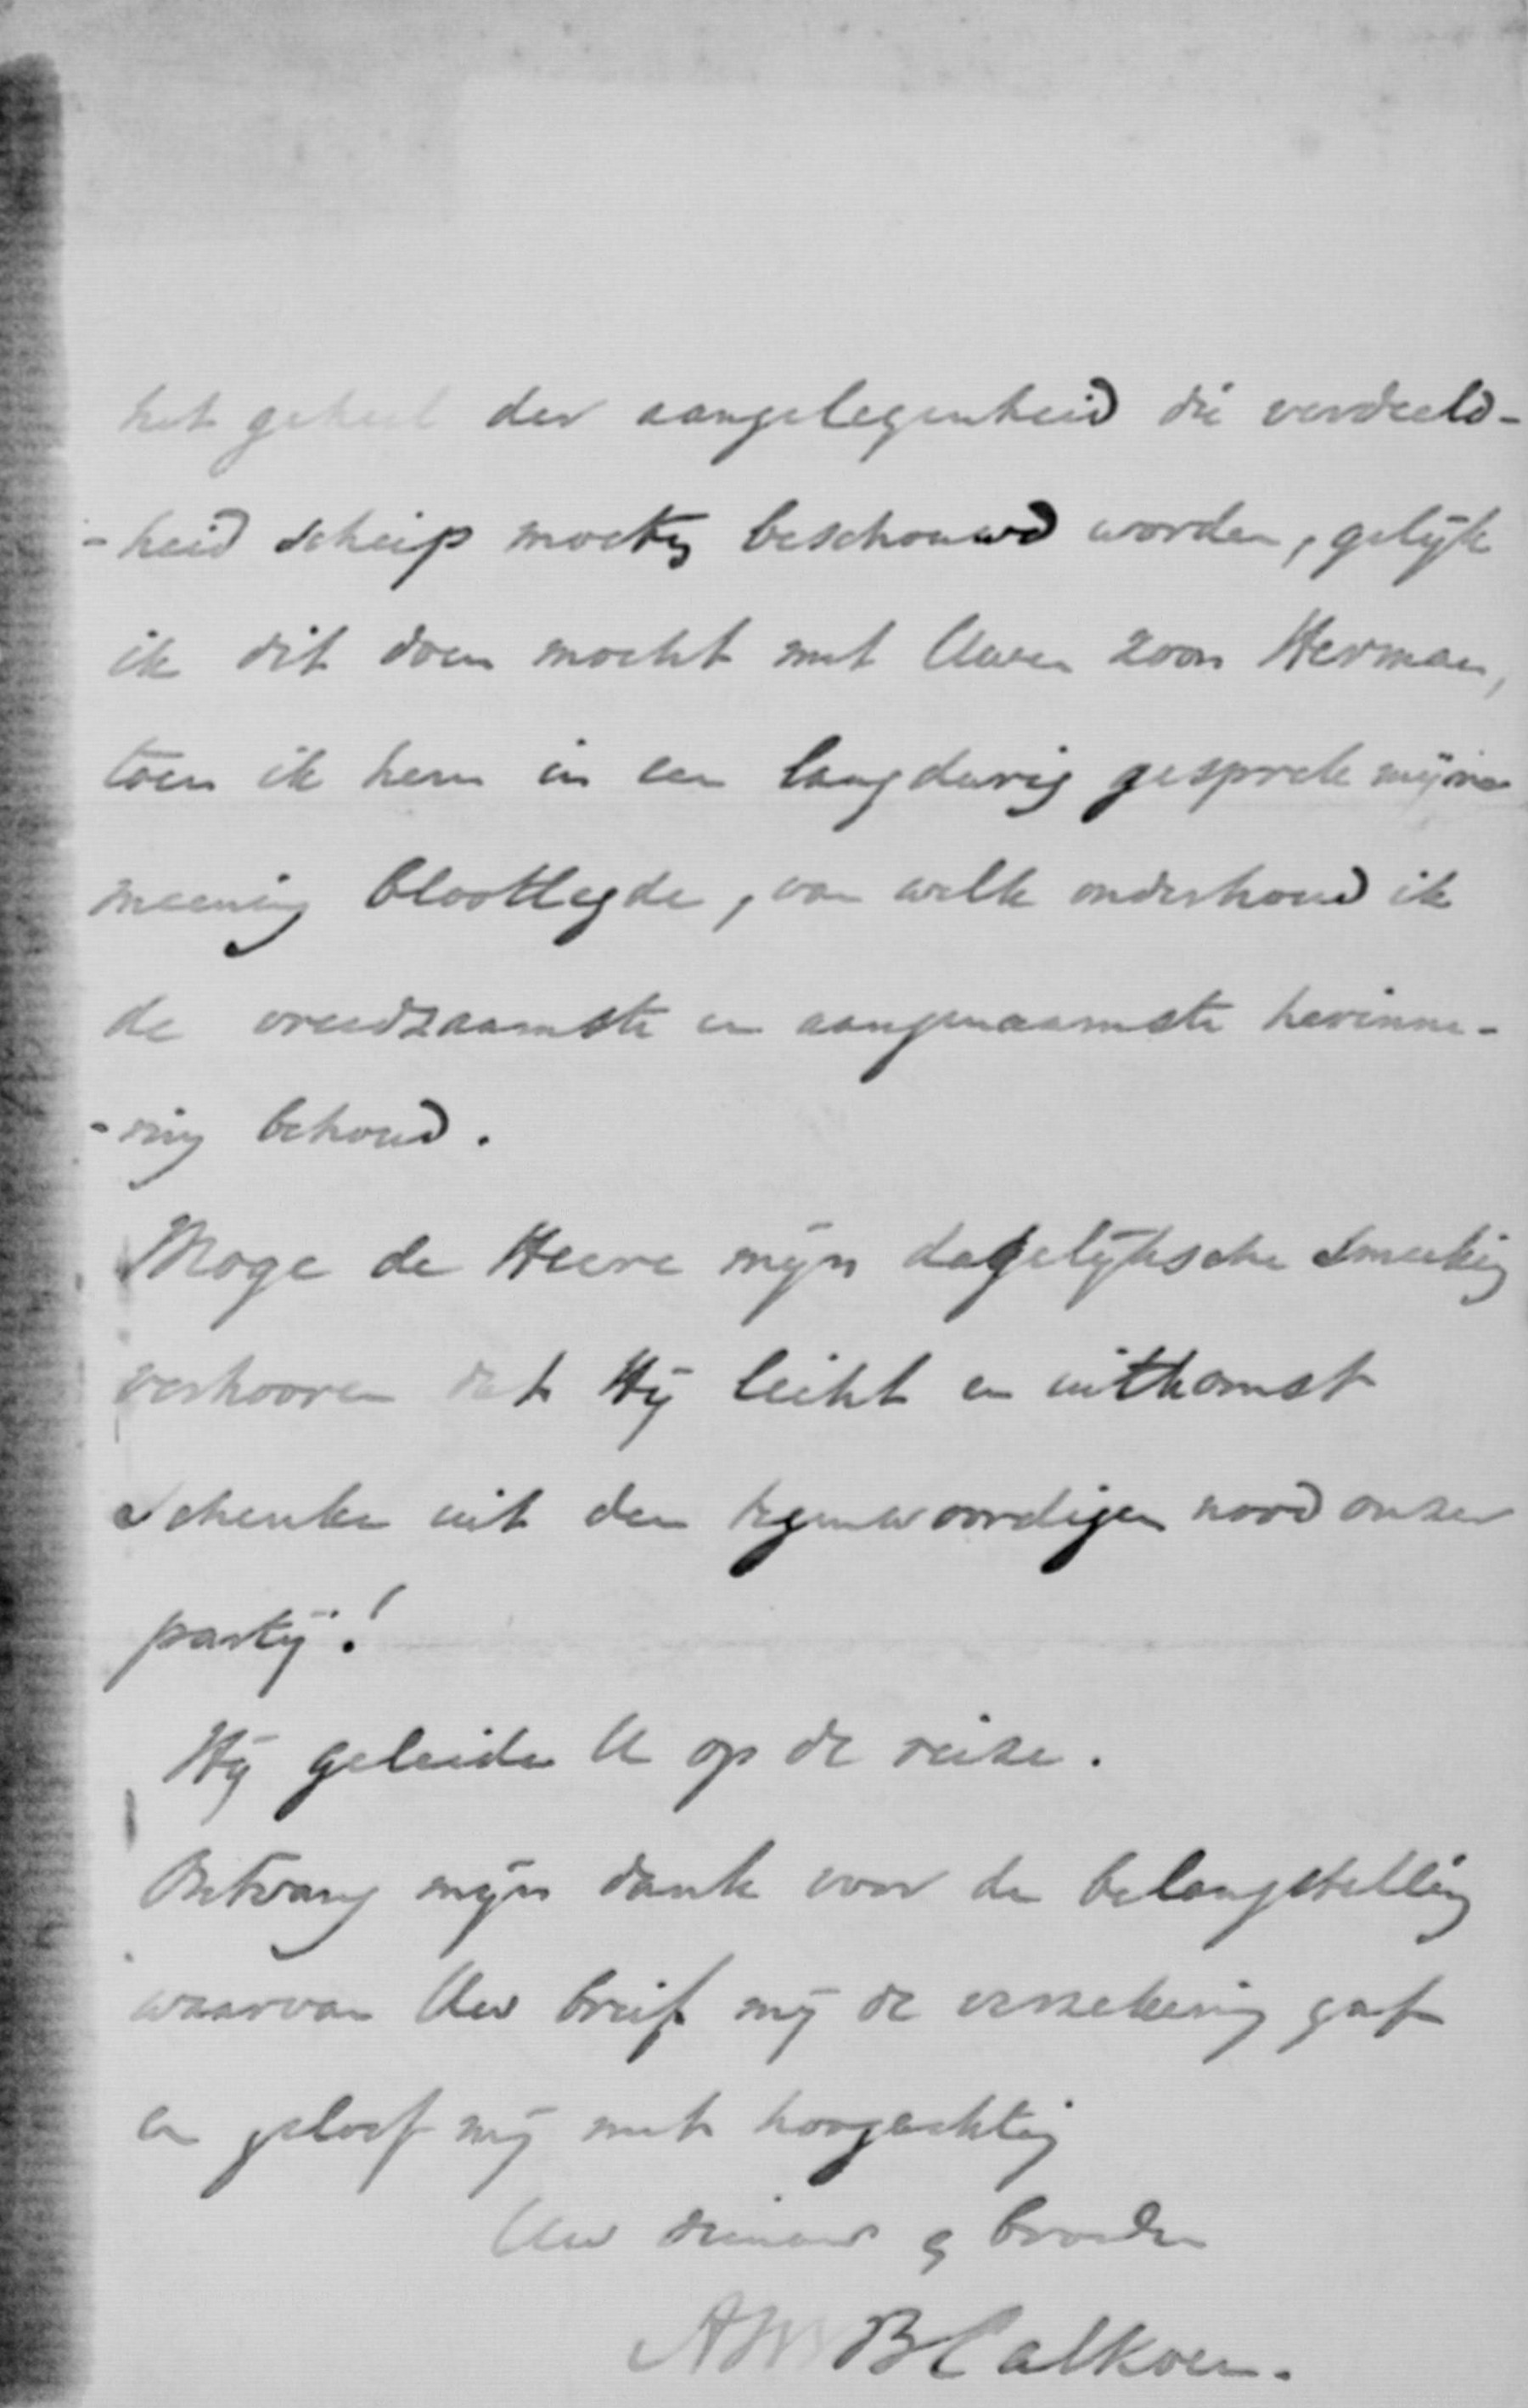 het geheel der aangelegenheid die verdeeld-
-heid schiep mocht beschouwd worden, gelijk
ik dit doen mocht met Uwen zoon Herman,
toen ik hem in een langdurig gesprek mijne
meening blootlegde, van welk onderhoud ik
de vreedzaamste en aangenaamste herinne-
-ring behoud.
Moge de Heere mijn dagelijksche smeeking
verhooren dat Hij licht en uitkomst
schenke uit den tegenwoordigen nood onzer
partij!
Hij geleide U op de reize.
Ontvang mijn dank voor de belangstelling
waarvan Uw brief mij de verzekering gaf
en geloof mij met hoogachting
Uw dienaar & broeder
AW B Calkoen.